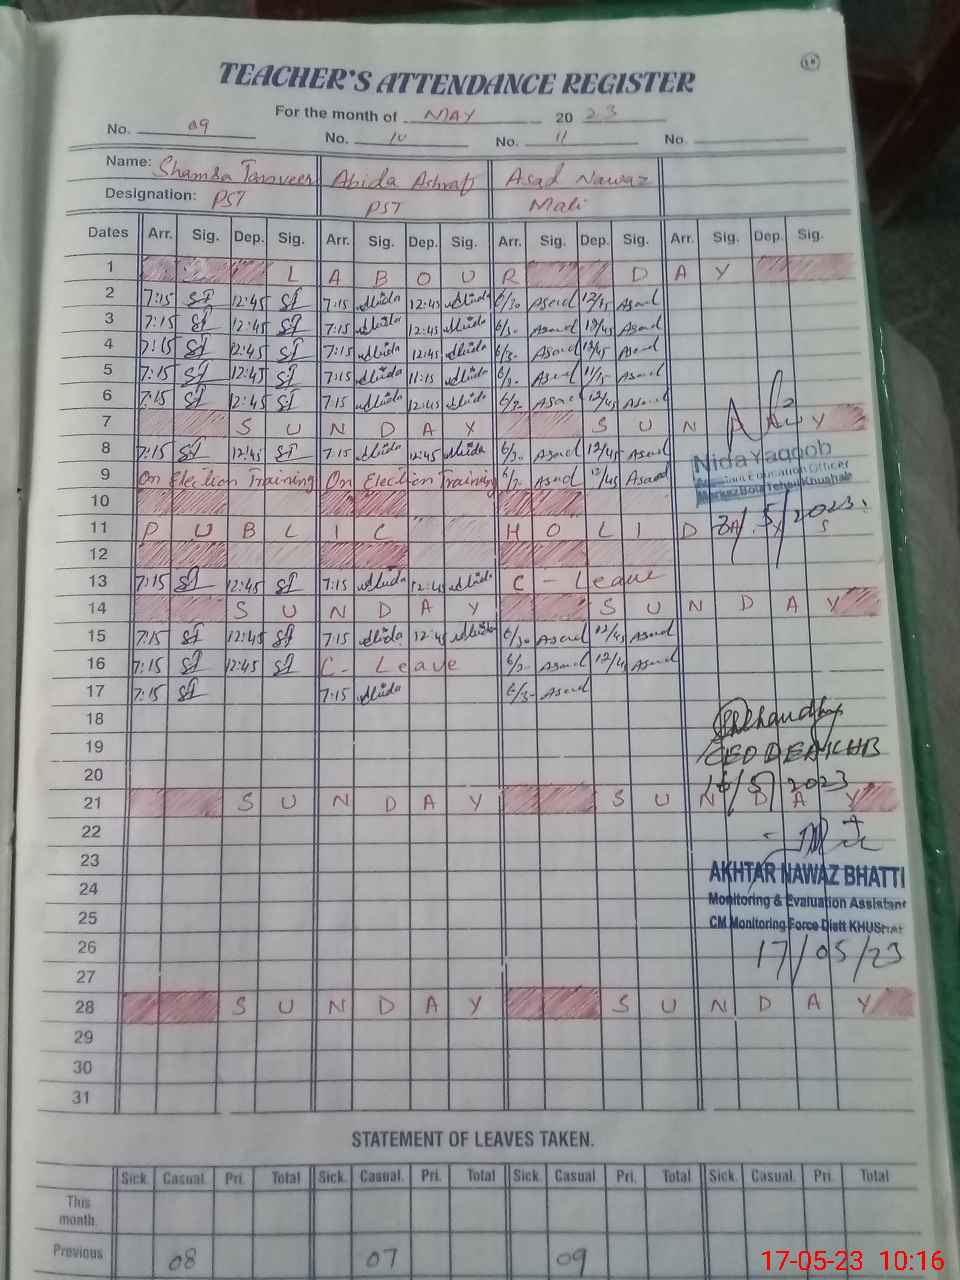 18
TEACHER'S ATTENDANCE REGISTER
For the month of MAY 20 23
No. 09 No. 10 No. 11 No.
Name: Shamsa Tanveer Abida Ashraf Asad Nawaz
Designation: PST PST Mali
Dates Arr. Sig. Dep. Sig. Arr. Sig. Dep. Sig. Arr. Sig. Dep. Sig. Arr. Sig. Dep. Sig.
1 L A B O U R D A Y
2 7:15 12:45 7:15 Abida 12:45 Abida 6/30 Asad 12/45 Asad
3 7:15 12:45 7:15 Abida 12:45 Abida 6/30 Asad 12/45 Asad
4 7:15 12:45 7:15 Abida 12:45 Abida 6/30 Asad 12/45 Asad
5 7:15 12:45 7:15 Abida 11:15 Abida 6/30 Asad 11/15 Asad
6 7:15 12:45 7:15 Abida 12:45 Abida 6/30 Asad 12/45 Asad
7 S U N D A Y S U N D A Y
8 7:15 12:45 7:15 Abida 12:45 Abida 6/30 Asad 12/45 Asad
Nida Yaqoob
Assistant Education Officer
9 On Election Training On Election Training 6/30 Asad 12/45 Asad
10
11 P U B L I C H O L I D A Y S
5/2023
12
13 7:15 12:45 7:15 Abida 12:45 Abida C - Leave
14 S U N D A Y S U N D A Y
15 7:15 12:45 7:15 Abida 12:45 Abida 6/30 Asad 12/45 Asad
16 7:15 12:45 C - Leave 6/30 Asad 12/45 Asad
17 7:15 7:15 Abida 6/30 Asad
18
19
CEO DEA KHB
20
16/5/2023
21 S U N D A Y S U N D A Y
22
23
AKHTAR NAWAZ BHATTI
24
Monitoring & Evaluation Assistant
25
CM Monitoring Force Distt KHUSHAB
26
17/05/23
27
28 S U N D A Y S U N D A Y
29
30
31
STATEMENT OF LEAVES TAKEN.
Sick. Casual. Pri. Total Sick. Casual. Pri. Total Sick. Casual. Pri. Total Sick. Casual. Pri. Total
This month.
Previous 08 07 09
17-05-23 10:16